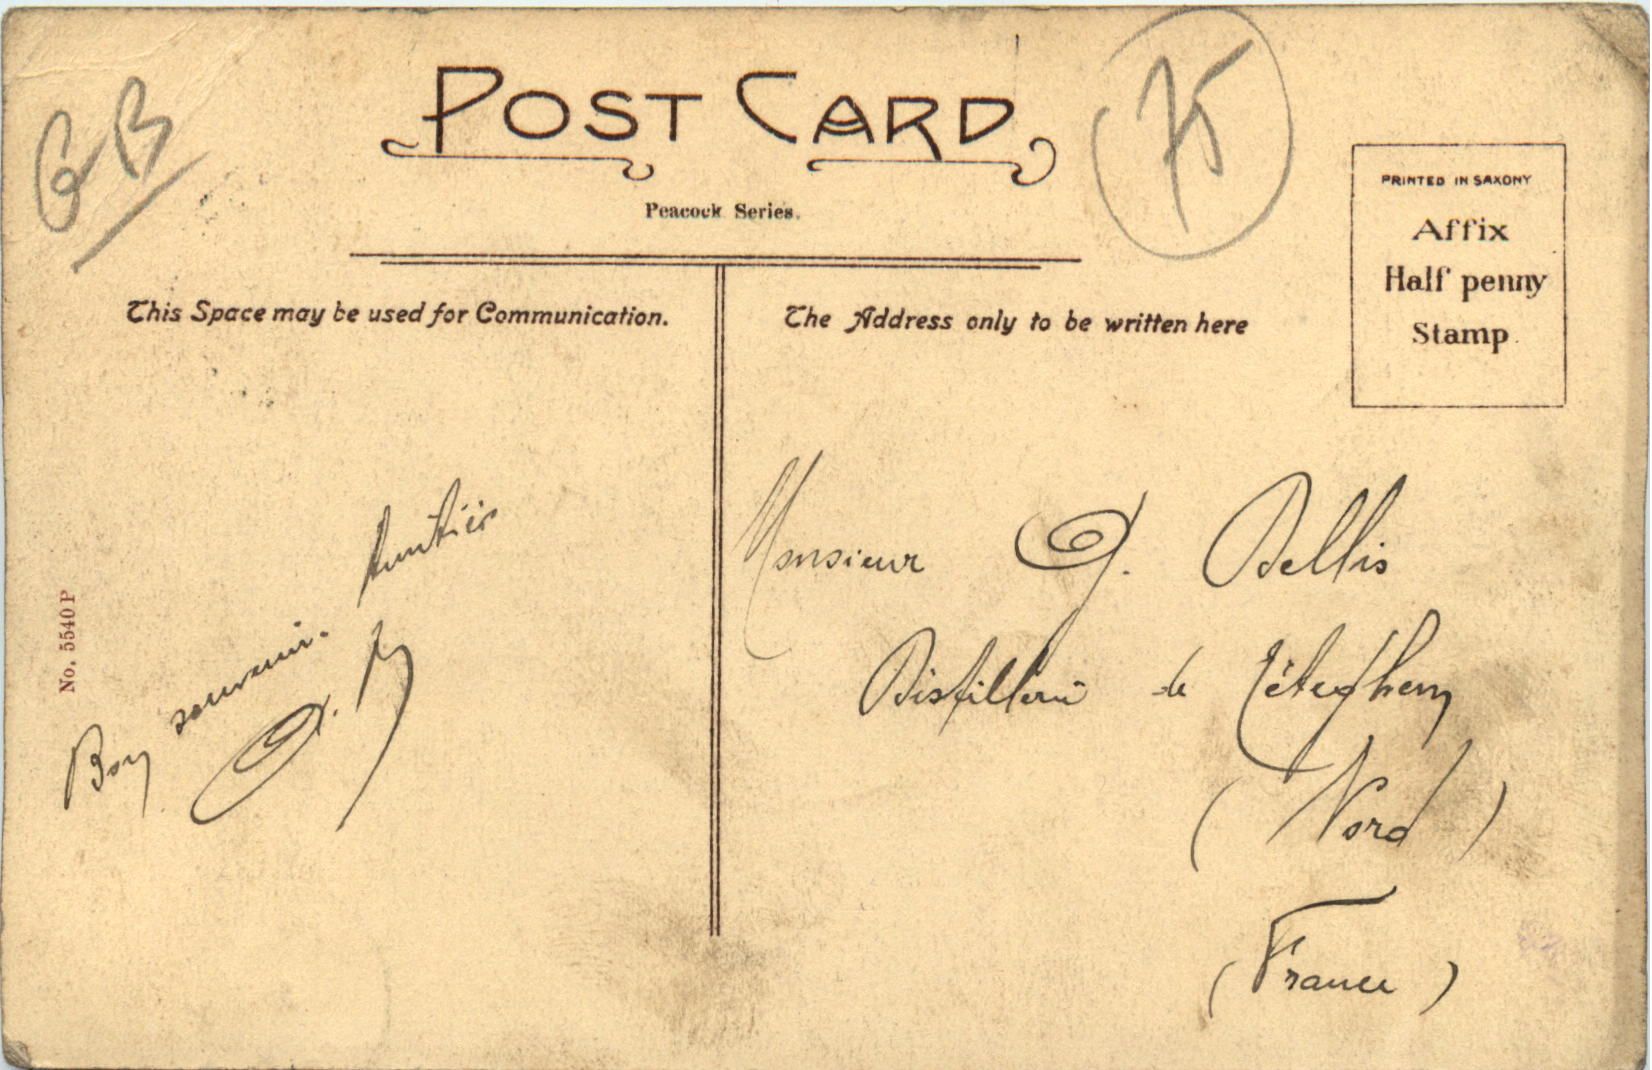 GB
POST CARD
75
Peacock Series.
PRINTED IN SAXONY
Affix
Half penny
Stamp.
This Space may be used for Communication.
The Address only to be written here
Bon souvenir.
Monsieur G. Dellis
Distillerie de Téteghem
(Nord)
(France)
No. 5540 P